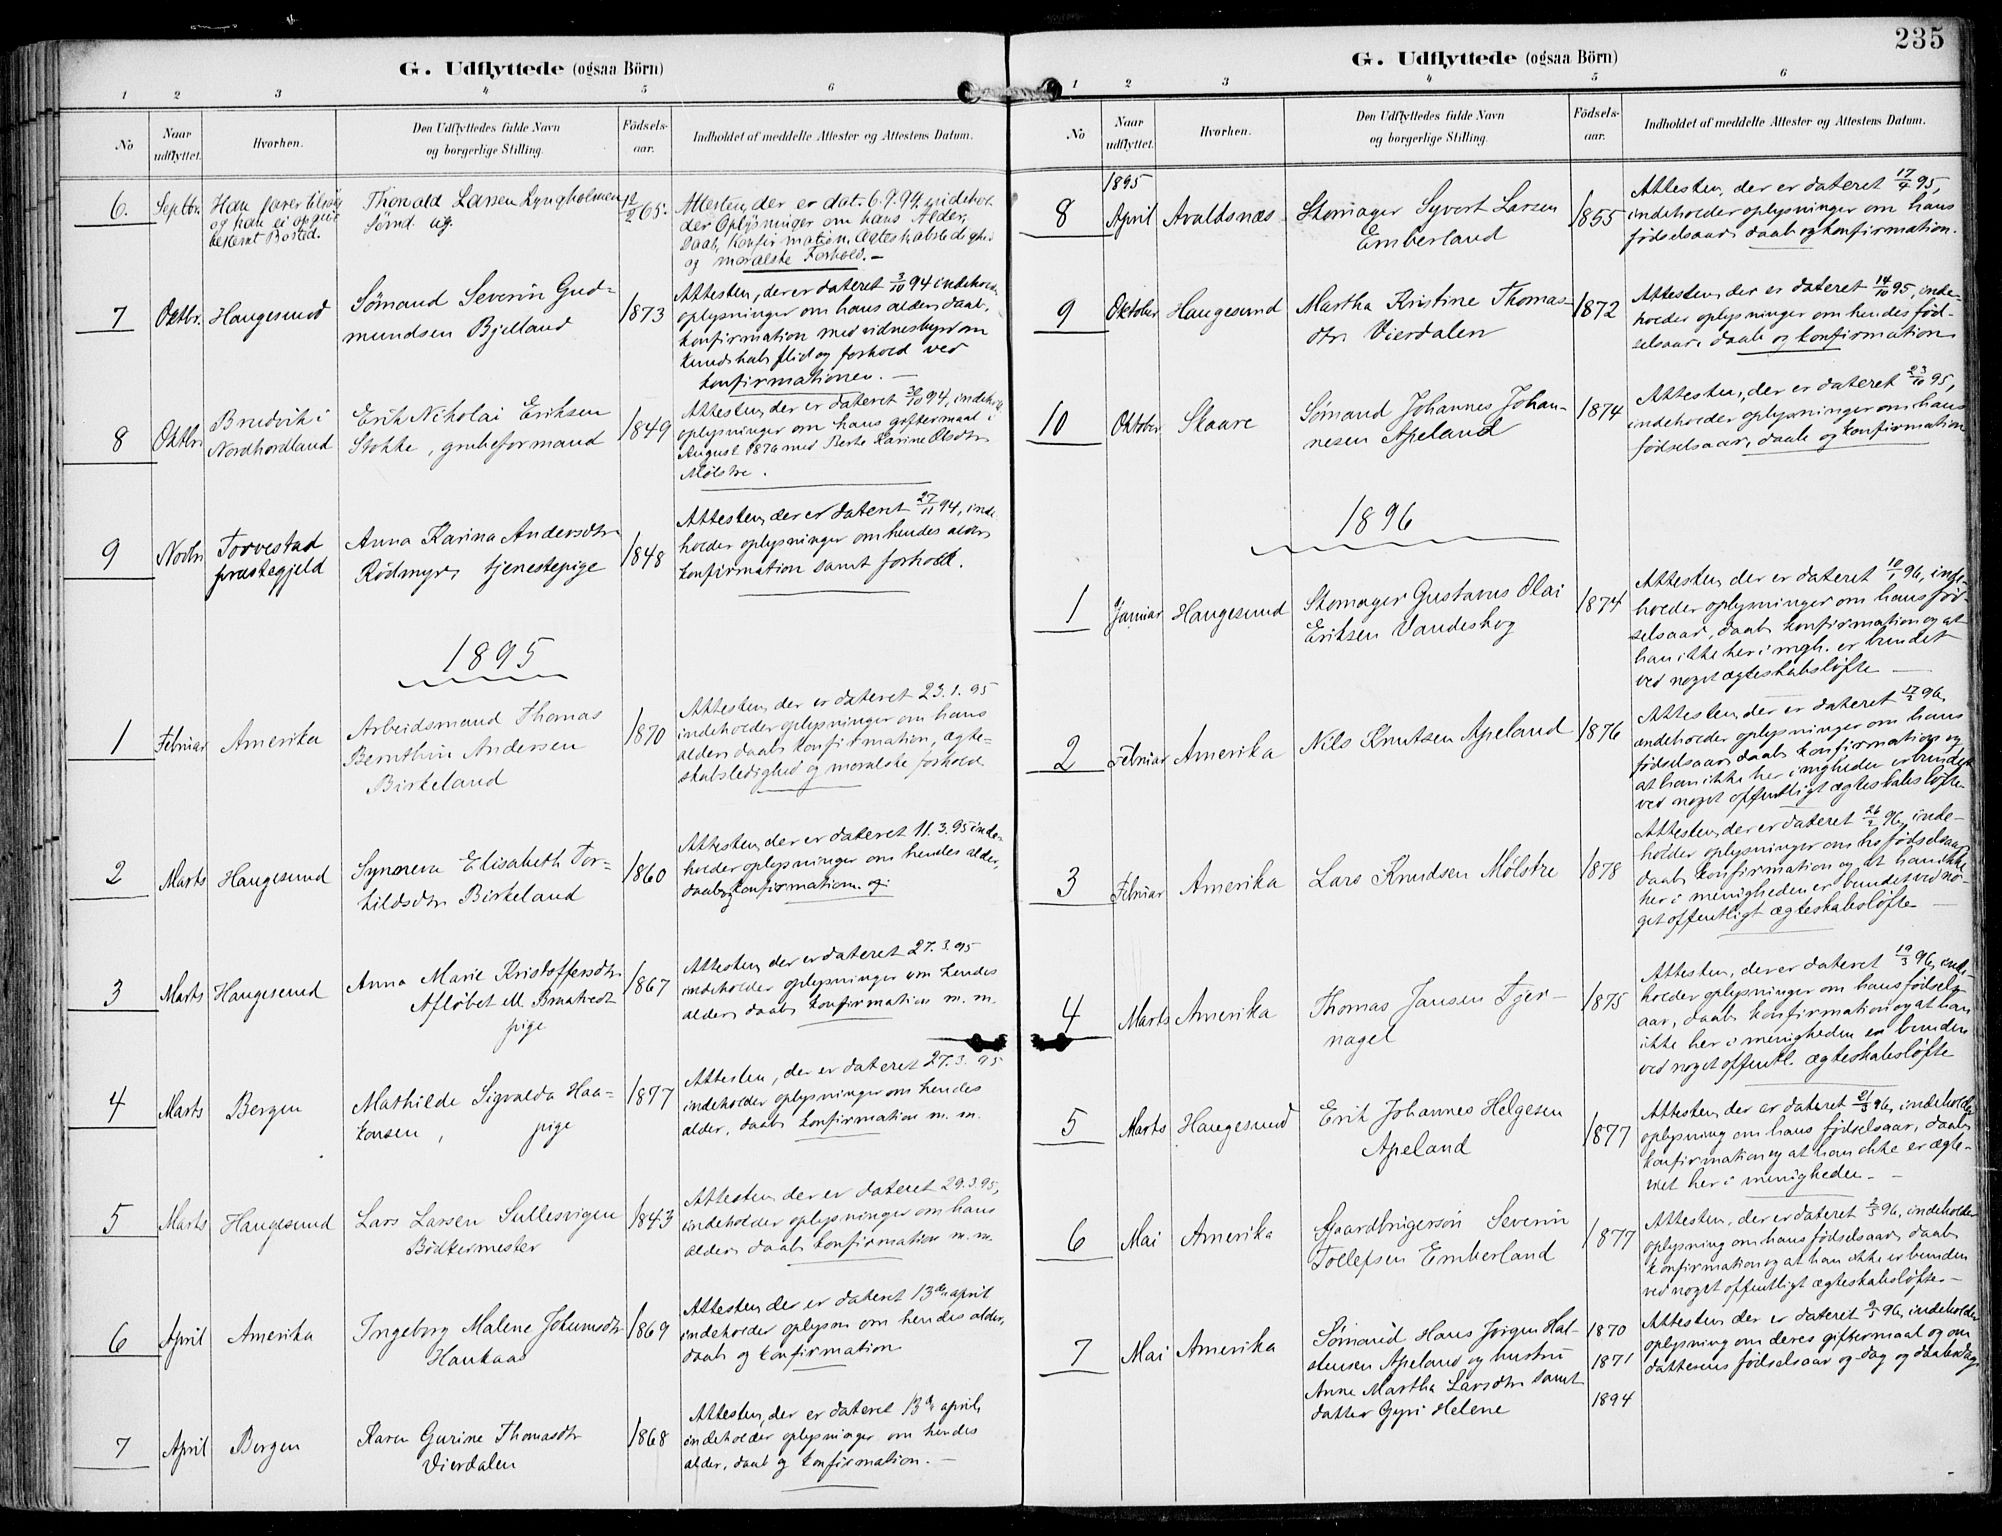 G. Udflyttede (ogsaa Börn)
1 2 3 4 5 6
No
Naar
udflyttet.
Hvorhen.
Den Udflyttedes fulde Navn
og borgerlige Stilling.
Födsels-
aar.
Indholdet af meddelte Attester og Attestens Datum.
6. Septbr.
og han ei opgive
bestemt Bosted.
Thorvald Larsen Lyngholmen
Sømd. ug.
12/2 65.
Attesten, der er dat. 6.9.94, indehol-
der Oplysninger om hans Alder,
Daab, Konfirmation, Ægteskabsledighed
og moralske Forhold. –
7 Oktbr. Haugesund
Sømand Severin Gud-
mundsen Bjelland
1873
Attesten, der er dateret 3/10 94 indeholder
oplysninger om hans alder, daab,
konfirmation med vidnesbyrd om
kundskab flid og forhold ved
konfirmationen. –
8 Oktbr
Bredvik i
Nordhordland
Erik Nikolai Eriksen
Stokke, grubeformand
1849
Attesten, der er dateret 30/10 94, indeholder
oplysninger om hans giftermaal i
August 1876 med Berte Karine Olsdtr
Mølstre.
9 Novbr
Torvestad
prestegjeld
Anna Karina Andersdtr
Rødmyr, tjenestepige
1848
Attesten, der er dateret 27/11 94, inde-
holder oplysninger om hendes alder,
konfirmation samt forhold.
1895
1 Februar Amerika
Arbeidsmand Thomas
Bernthin Andersen
Birkeland
1870
Attesten, der er dateret 23.1.95
indeholder oplysninger om hans
alder, daab, konfirmation, ægte-
skabsledighed og moralske forhold
2 Marts Haugesund
Synneva Elisabeth Tor-
kildsdtr Birkeland
1860
Attesten, der er dateret 11.3.95 inde-
holder oplysninger om hendes alder,
daab, konfirmation. og
3 Marts Haugesund
Anna Marie Kristoffersdtr
pige
1867
Attesten, der er dateret 27.3.95
indeholder oplysninger om hendes
alder, daab, konfirmation m.m.
4 Marts Bergen
Mathilde Sigvalda Haa-
konsen, pige
1877
Attesten, der er dateret 27.3.95
indeholder oplysninger om hendes
alder, daab, konfirmation m.m.
5 Marts Haugesund
Lars Larsen Sullesvigen
Bødkermester
1843
Attesten, der er dateret 29.3.95,
indeholder oplysninger om hans
alder, daab, konfirmation m.m.
6 April Amerika
Ingeborg Malene Johannesdtr
Haukaas
1869
Attesten, der er dateret 13de april
indeholder oplysn om hendes alder,
daab og konfirmation
7 April Bergen
Karen Gurine Thomasdtr
Vierdalen
1868
Attesten, der er dateret 13de april,
indeholder oplysninger om hendes
alder, daab og konfirmation. –
235
G. Udflyttede (ogsaa Börn)
1 2 3 4 5 6
No
Naar
udflyttet.
Hvorhen.
Den Udflyttedes fulde Navn
og borgerlige Stilling.
Födsels-
aar.
Indholdet af meddelte Attester og Attestens Datum.
1895
8 April Avaldsnæs
Skomager Syvert Larsen
Emberland
1855
Attesten, der er dateret 17/4 95,
indeholder oplysninger om hans
fødselsaar, daab og konfirmation.
9 Oktober Haugesund
Martha Kristine Thomas-
dtr Vierdalen
1872
Attesten, der er dateret 14/10 95, inde-
holder oplysninger om hendes fød-
selsaar, daab og konfirmation
10 Oktober Skaare
Sømand Johannes Johan-
nesen Apeland
1874
Attesten, der er dateret 23/10 95,
indeholder oplysninger om hans
fødselsaar, daab og konfirmation
1896
1 Januar Haugesund
Skomager Gustavus Olai
Eriksen Vandeskog
1874
Attesten, der er dateret 10/1 96, inde-
holder oplysninger om hans fød-
selsaar, daab, konfirmation og at
han ikke her i mgh. er bundet
ved noget ægteskabsløfte –
2 Februar Amerika
Nils Knutsen Apeland
1876
Attesten, der er dateret 17/2 96,
indeholder oplysninger om hans
fødselsaar, daab, konfirmation og
at han ikke her i mgheden er bundet
ved noget offentligt ægteskabsløfte
3 Februar Amerika
Lars Knudsen Mølstre
1878
Attesten, der er dateret 26/2 96, inde-
holder oplysninger om hs fødselsaar
daab, konfirmation og at han ikke
her i menigheden er bundet ved no-
get offentligt ægteskabsløfte –
4 Marts Amerika
Thomas Jansen Tjer-
nagel
1875
Attesten, der er dateret 19/3 96, inde-
holder oplysninger om hans fødsels-
aar, daab, konfirmation og at han
ikke her i menigheden er bunden
ved noget offentl. ægteskabsløfte
5 Marts Haugesund
Erik Johannes Helgesen
Apeland
1877
Attesten, der er dateret 21/3 96, indeholder
oplysning om hans fødselsaar, daab,
konfirmation og at han ikke er ægte-
viet her i menigheden. –
6 Mai Amerika
Gaardbrugersøn Severin
Tollefsen Emberland
1877
Attesten, der er dateret 2/5 96, indeholder
oplysning om hans fødselsaar, daab,
konfirmation og at han ikke er bunden
ved noget offentligt ægteskabsløfte. –
7 Mai Amerika
Sømand Hans Jørgen Hal-
stensen Apeland og hustru
Anne Martha Larsdtr samt
datter Gyri Helene
1870
1871
1894
Attesten, der er dateret 9/5 96, indeholder
oplysning om deres giftermaal og om
datterens fødselsaar og -dag og daabsdag